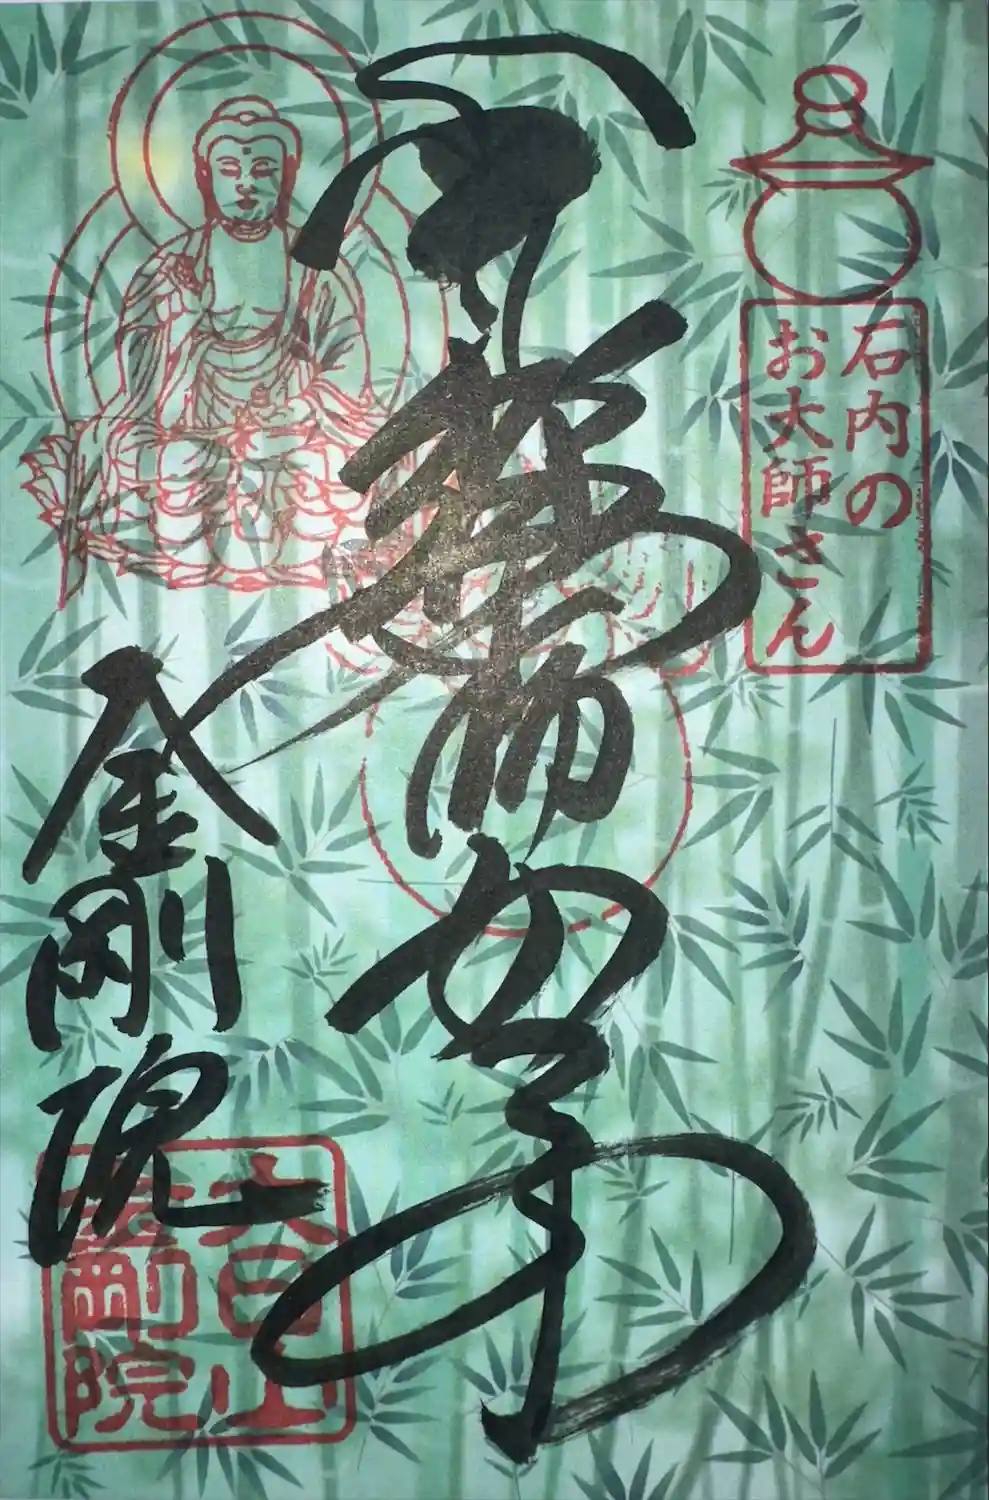 石内の
お大師さん
薬師如来
金剛院
大日山
金剛院